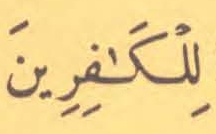 لِلْكَـٰفِرِينَ